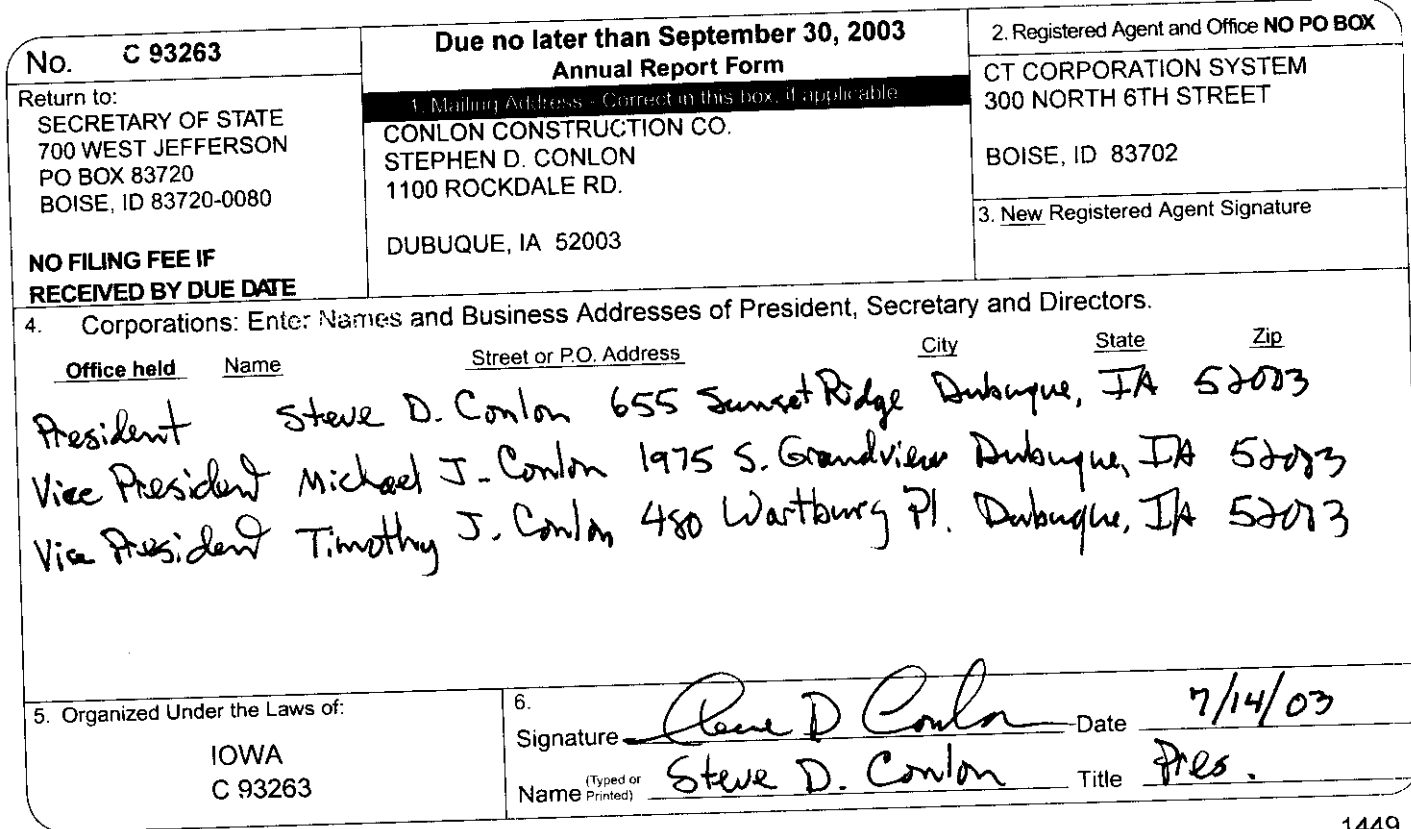 No. C 93263
Return to:
SECRETARY OF STATE
700 WEST JEFFERSON
PO BOX 83720
BOISE, ID 83720-0080
NO FILING FEE IF
RECEIVED BY DUE DATE
Due no later than September 30, 2003
Annual Report Form
1. Mailing Address - Correct in this box, if applicable
CONLON CONSTRUCTION CO.
STEPHEN D. CONLON
1100 ROCKDALE RD.
DUBUQUE, IA 52003
2. Registered Agent and Office NO PO BOX
CT CORPORATION SYSTEM
300 NORTH 6TH STREET
BOISE, ID 83702
3. New Registered Agent Signature
4. Corporations: Enter Names and Business Addresses of President, Secretary and Directors.
Office held Name Street or P.O. Address City State Zip
President Steve D. Conlon 655 Sunset Ridge Dubuque, IA 52003
Vice President Michael J. Conlon 1975 S. Grandview Dubuque, IA 52003
Vice President Timothy J. Conlon 480 Wartburg Pl. Dubuque, IA 52003
5. Organized Under the Laws of:
IOWA
C 93263
6.
Signature Steve D Conlon Date 7/14/03
Name (Typed or Printed) Steve D. Conlon Title Pres.
1449